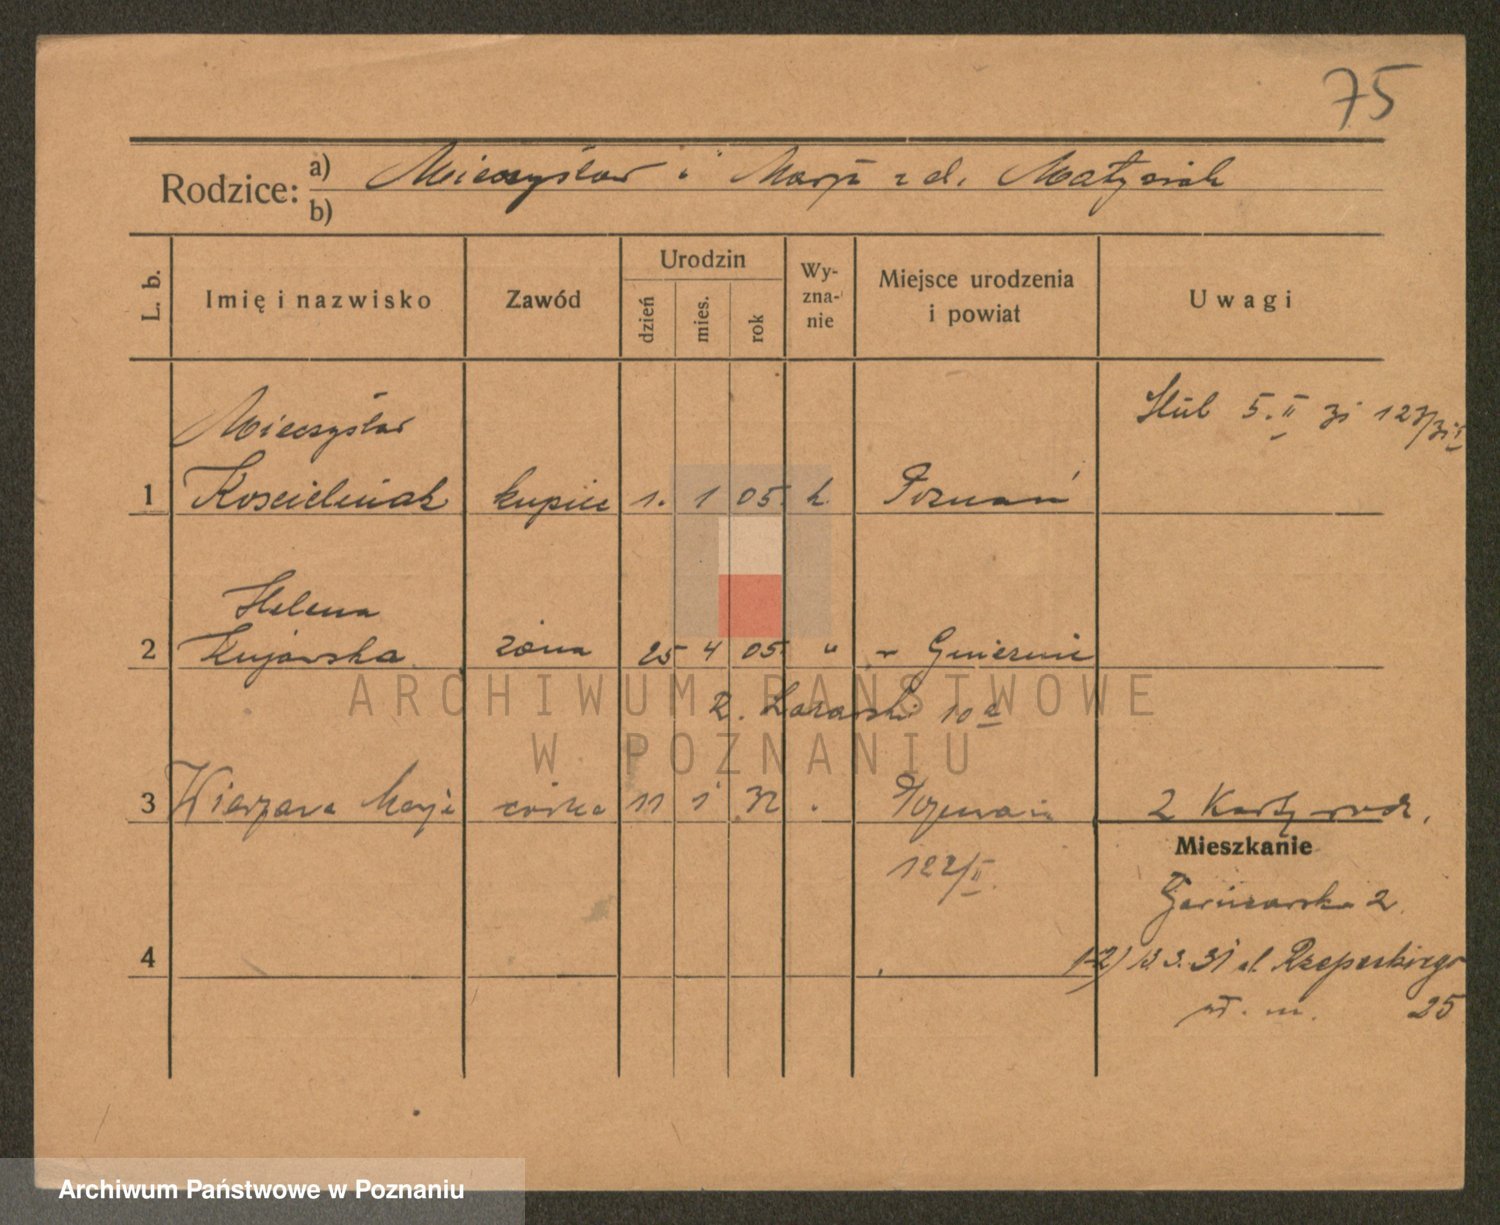 75
Rodzice: a) Mieczysław i Marja z d. Matysiak
b)
L. b.
Imię i nazwisko
Zawód
Urodzin
dzień
mies.
rok
Wy-
zna-
nie
Miejsce urodzenia
i powiat
Uwagi
Mieczysław
Ślub 5. II 31 123/31
1 Kościelniak kupiec 1. 1 05. k Poznań
Helena
2 Kujawska żona 25 4 05. " Gniezno
10a
ARCHIWUM PAŃSTWOWE
W POZNANIU
3 Marja córka 11 1 32 Poznań 2 Karty rodz.
Mieszkanie
122/II.
2.
4
1-2) 13.3.31 ul. Rzepeckiego
wł. m. 25
Archiwum Państwowe w Poznaniu